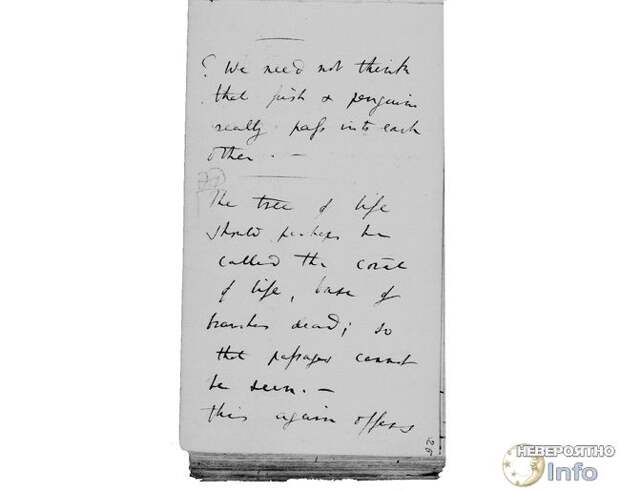 ? We need not think
that fish & penguins
really pass into each
other. —
The tree of life
should perhaps be
called the coral
of life, base of
branches dead; so
that passages cannot
be seen. —
this again offers
26
НЕВЕРОЯТНО
Info